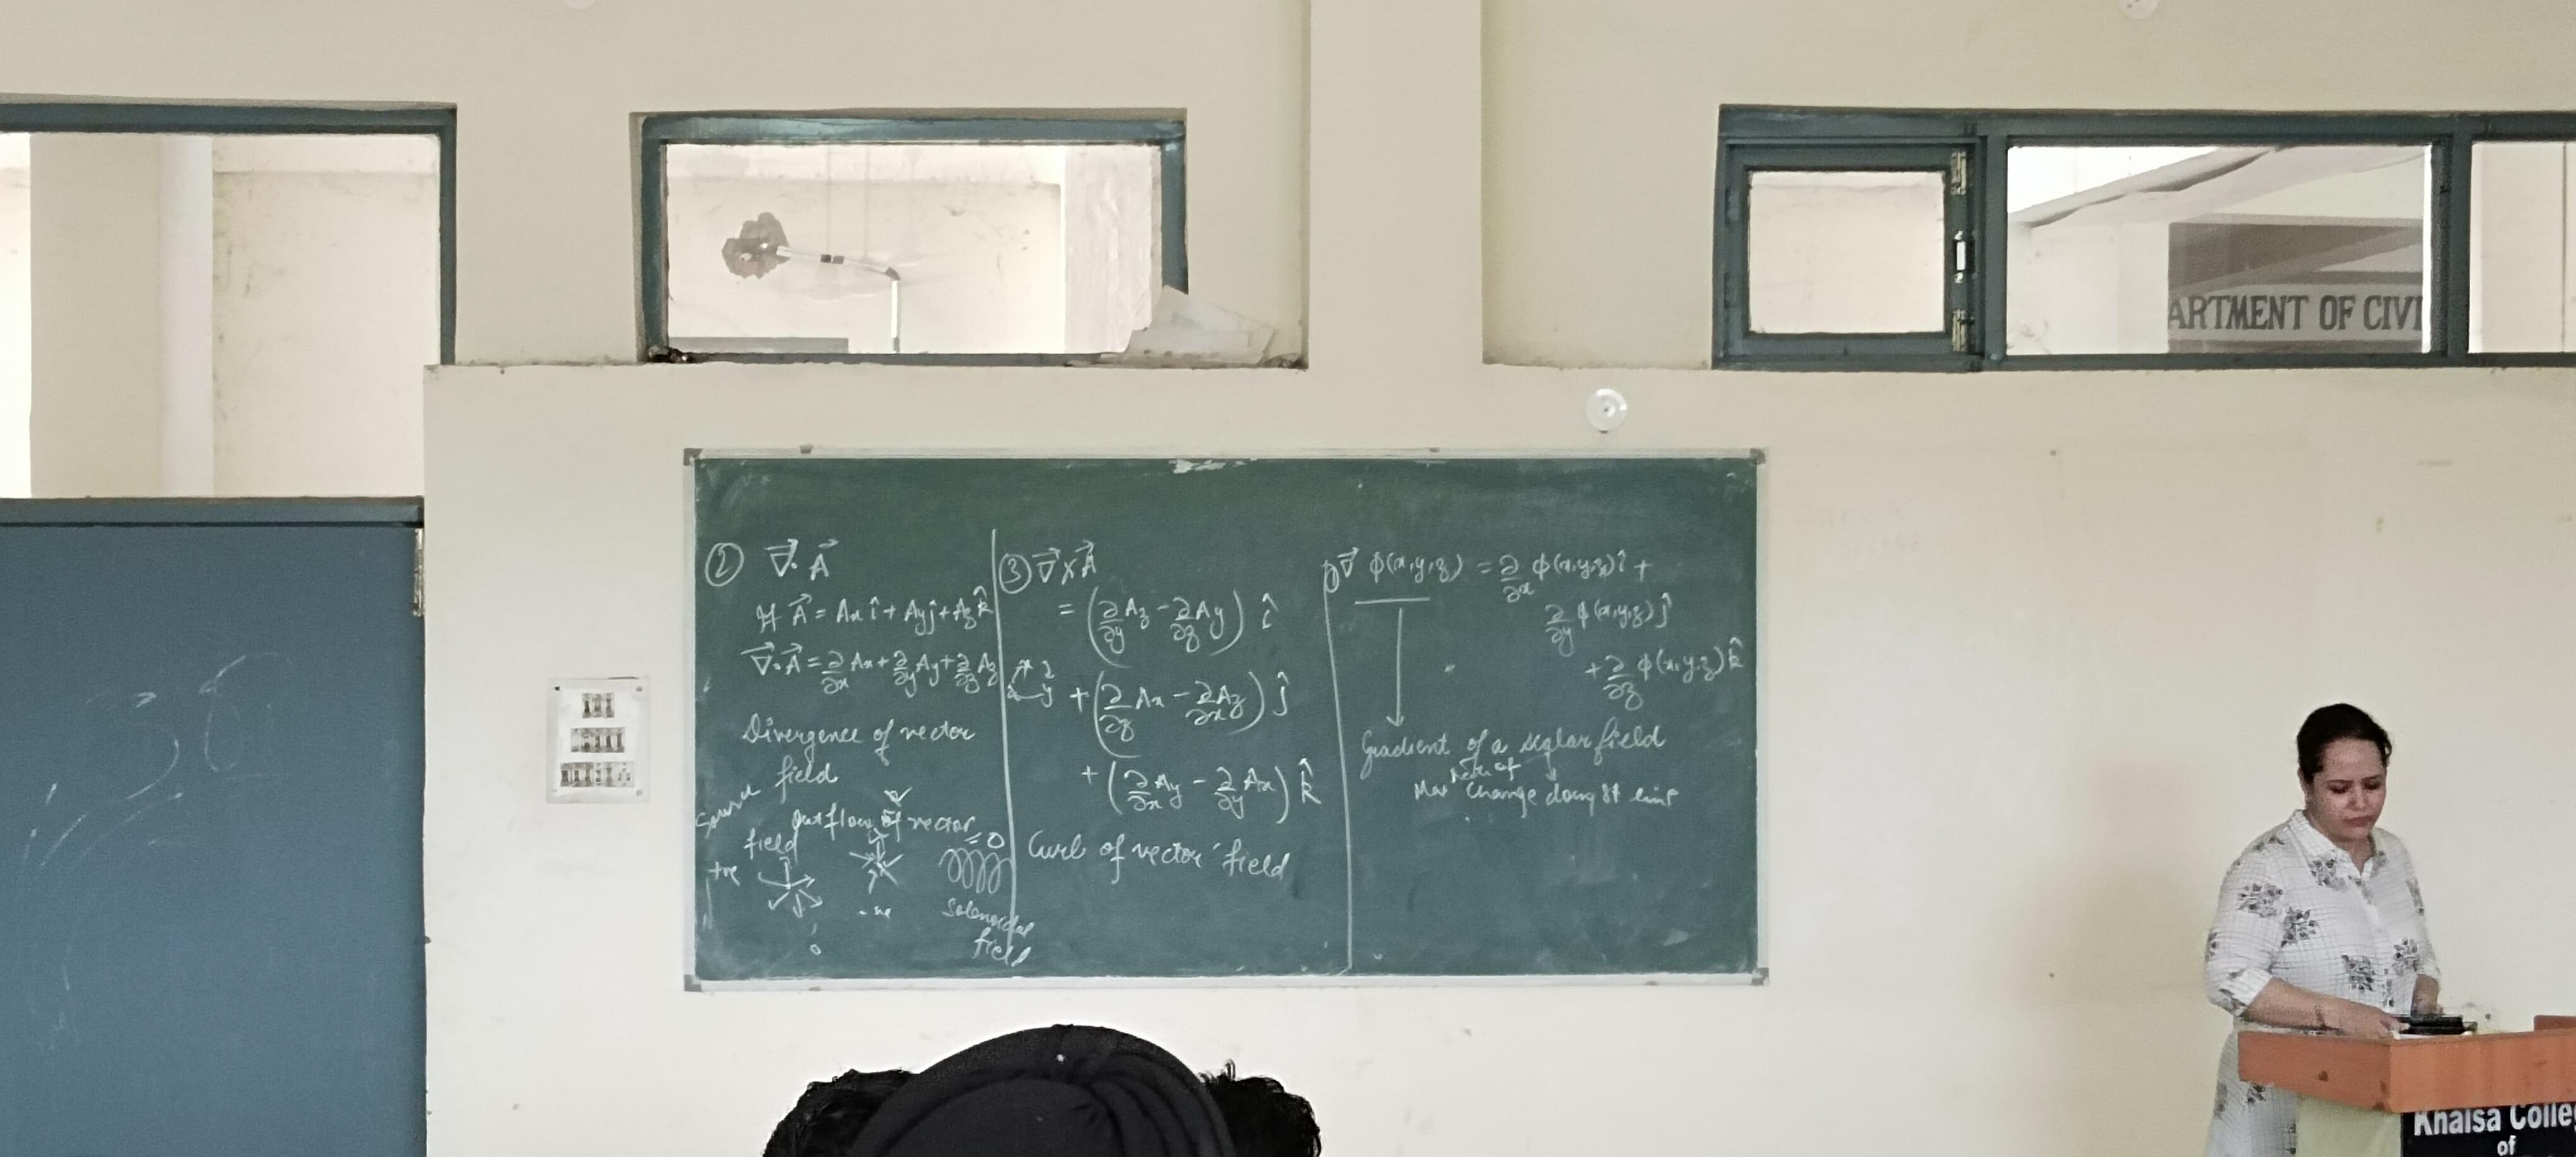 ARTMENT OF CIVI
② ∇⃗. A⃗
If A⃗ = Ax î + Ay ĵ + Az k̂
∇⃗.A⃗ = ∂/∂x Ax + ∂/∂y Ay + ∂/∂z Az
Divergence of vector
field
out flow of vector
field
= 0
+ve
-ve
Solenoidal
field
③ ∇⃗ x A⃗
= (∂/∂y Az - ∂/∂z Ay) î
+ (∂/∂z Ax - ∂/∂x Az) ĵ
+ (∂/∂x Ay - ∂/∂y Ax) k̂
Curl of vector field
① ∇⃗ ϕ(x,y,z) = ∂/∂x ϕ(x,y,z) î +
∂/∂y ϕ(x,y,z) ĵ
+ ∂/∂z ϕ(x,y,z) k̂
Gradient of a scalar field
Max change along st line
Khalsa Colle
of